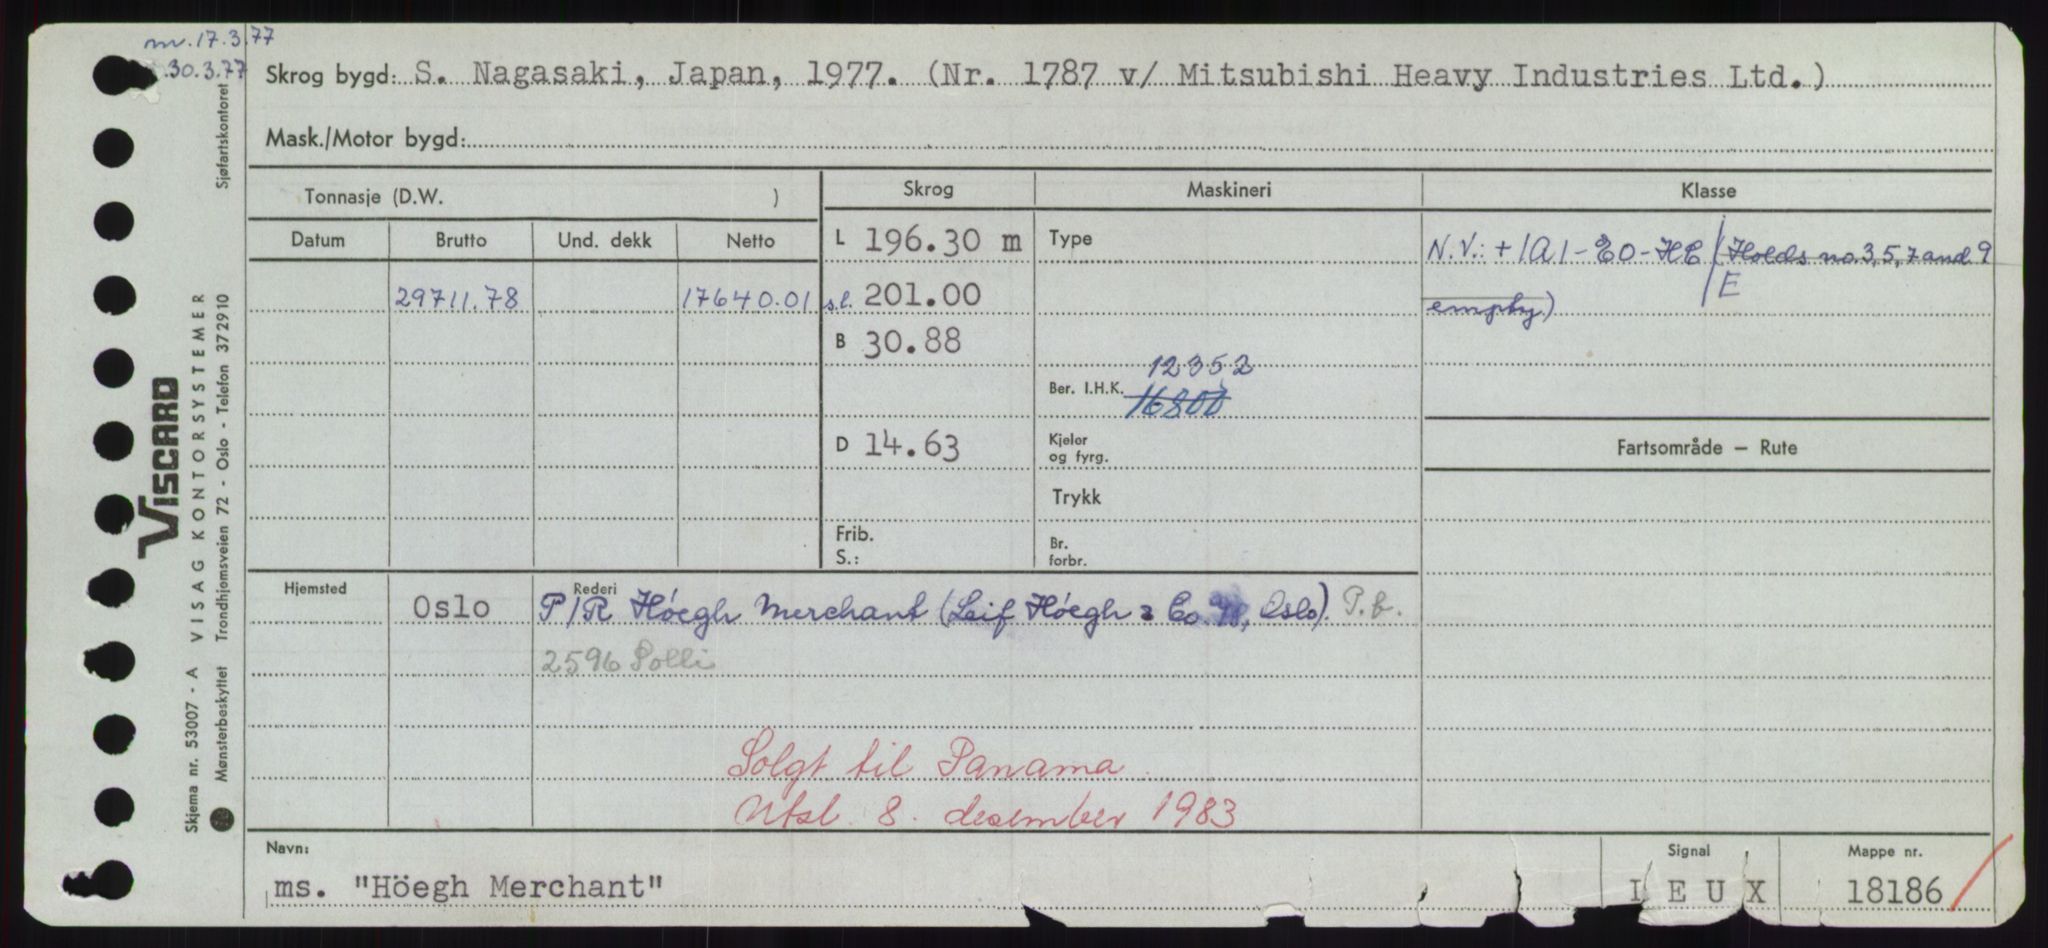 mv. 17.3.77
30.3.77
Skrog bygd: S. Nagasaki, Japan, 1977. (Nr. 1787 v/ Mitsubishi Heavy Industries Ltd.)
Mask./Motor bygd:
Tonnasje (D.W. )
Skrog
Maskineri
Klasse
Datum Brutto Und. dekk Netto
L 196.30 m
Type
N.V.: + 1A1 - EO - HC / (Holds no. 3, 5, 7 and 9
29711.78 17640.01
s.l. 201.00
E
empty)
B 30.88
12352
Ber. I.H.K. 16800
D 14.63
Kjeler
og fyrg.
Fartsområde – Rute
Trykk
Frib.
S.:
Br.
forbr.
Hjemsted Oslo
Rederi
P/R Höegh Merchant (Leif Höegh & Co. , Oslo). P.b.
2596 Solli
Solgt til Panama.
Utsl. 8. desember 1983
Navn:
ms. "Höegh Merchant"
Signal
I E U X
Mappe nr.
18186
VISCARD
Skjema nr. 53007 - A VISAG KONTORSYSTEMER
Mønsterbeskyttet Trondhjemsveien 72 - Oslo - Telefon 372910
Sjøfartskontoret